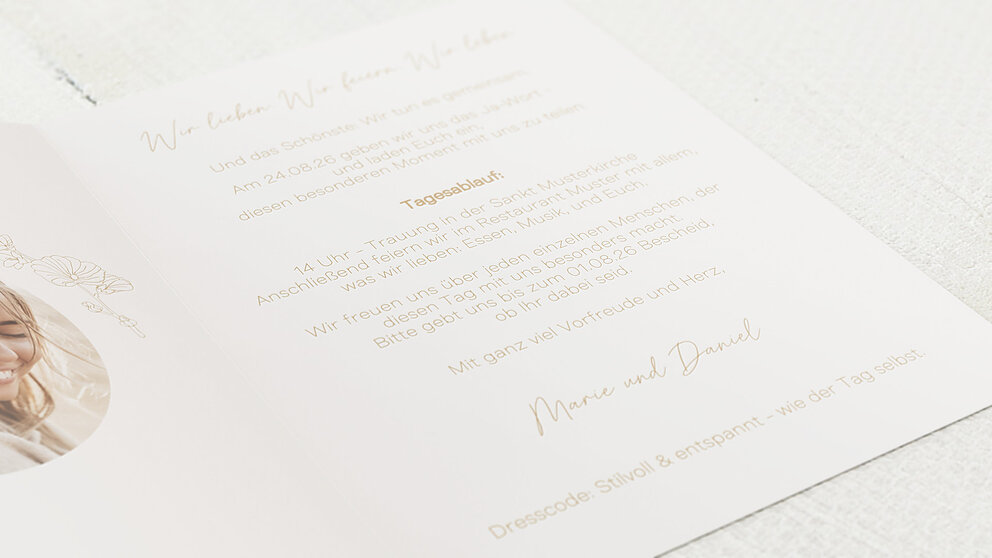 Wir lieben Wir feiern Wir leben
Und das Schönste: Wir tun es gemeinsam.
Am 24.08.26 geben wir uns das Ja-Wort -
und laden Euch ein,
diesen besonderen Moment mit uns zu teilen.
Tagesablauf:
14 Uhr - Trauung in der Sankt Musterkirche
Anschließend feiern wir im Restaurant Muster mit allem,
was wir lieben: Essen, Musik, und Euch.
Wir freuen uns über jeden einzelnen Menschen, der
diesen Tag mit uns besonders macht.
Bitte gebt uns bis zum 01.08.26 Bescheid,
ob Ihr dabei seid.
Mit ganz viel Vorfreude und Herz,
Marie und Daniel
Dresscode: Stilvoll & entspannt - wie der Tag selbst.